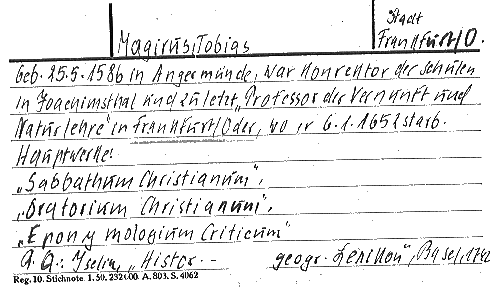 Stadt
Magirus, Tobias Frankfurt/O.
Geb. 25.5.1586 in Angermünde, war Konrektor der Schulen
in Joachimsthal und zuletzt „Professor der Vernunft und
Naturlehre" in Frankfurt/Oder, wo er 6.1.1652 starb.
Hauptwerke:
„Sabbathum Christianum",
„Oratorium Christianum",
„Eponymologium Criticum"
a.a.: Iselin, „Histor.- geogr. Lexikon", Basel, 1742
Reg. 10. Stichnote. 1. 50. 232000. A. 803. S. 4062